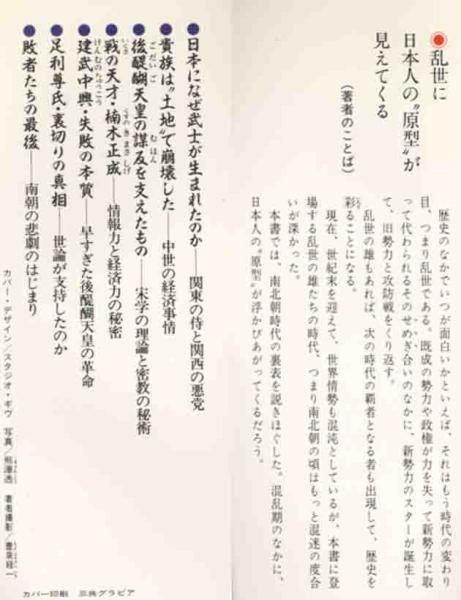 乱世に
日本人の〝原型〟が
見えてくる
(著者のことば)
歴史のなかでいつが面白いかといえば、それはもう時代の変わり
目、つまり乱世である。既成の勢力や政権が力を失って新勢力に取
って代わられるそのせめぎ合いのなかに、新勢力のスターが誕生し
て、旧勢力と攻防戦をくり返す。
乱世の雄もあれば、次の時代の覇者となる者も出現して、歴史を
彩ることになる。
現在、世紀末を迎えて、世界情勢も混沌としているが、本書に登
場する乱世の雄たちの時代、つまり南北朝の頃はもっと混迷の度合
いが深かった。
本書では、南北朝時代の裏表を説きほぐした。混乱期のなかに、
日本人の〝原型〟が浮かびあがってくるだろう。
日本になぜ武士が生まれたのか——関東の侍と関西の悪党
貴族は〝土地〟で崩壊した——中世の経済事情
後醍醐天皇の謀反を支えたもの——宋学の理論と密教の秘術
戦の天才・楠木正成——情報力と経済力の秘密
建武中興・失敗の本質——早すぎた後醍醐天皇の革命
足利尊氏・裏切りの真相——世論が支持したのか
敗者たちの最後——南朝の悲劇のはじまり
カバー・デザイン/スタジオ・ギヴ 写真/熊澤透 著者撮影/豊泉經一
カバー印刷 三共グラビア